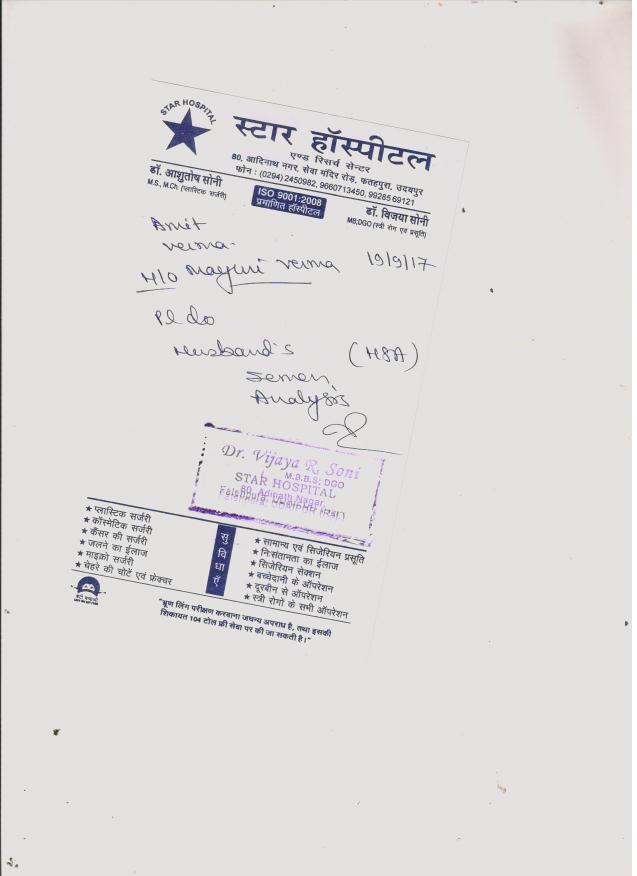 STAR HOSPITAL
स्टार हॉस्पीटल
एण्ड रिसर्च सेन्टर
80, आदिनाथ नगर, सेवा मंदिर रोड, फतहपुरा, उदयपुर
फोन : (0294) 2450982, 9660713450, 99285 69121
डॉ. आशुतोष सोनी
M.S., M.Ch. (प्लास्टिक सर्जरी)
ISO 9001:2008
प्रमाणित हॉस्पीटल
डॉ. विजया सोनी
MB;DGO (स्त्री रोग एवं प्रसूति)
Amit
Verma
H/O Mayuri Verma 19/9/17
Pl do
Husband's (HSA)
Semen
Analysis
Dr. Vijaya R. Soni
M.B.B.S; DGO
STAR HOSPITAL
80, Adinath Nagar,
Fatehpura, UDAIPUR (Raj.)
सुविधाएँ
★ प्लास्टिक सर्जरी
★ कॉस्मेटिक सर्जरी
★ कैंसर की सर्जरी
★ जलने का ईलाज
★ माइक्रो सर्जरी
★ चेहरे की चोटें एवं फ्रेक्चर
★ सामान्य एवं सिजेरियन प्रसूति
★ निःसंतानता का ईलाज
★ सिजेरियन सेक्शन
★ बच्चेदानी के ऑपरेशन
★ दूरबीन से ऑपरेशन
★ स्त्री रोगों के सभी ऑपरेशन
"भ्रूण लिंग परीक्षण करवाना जघन्य अपराध है, तथा इसकी
शिकायत 104 टोल फ्री सेवा पर की जा सकती है।"